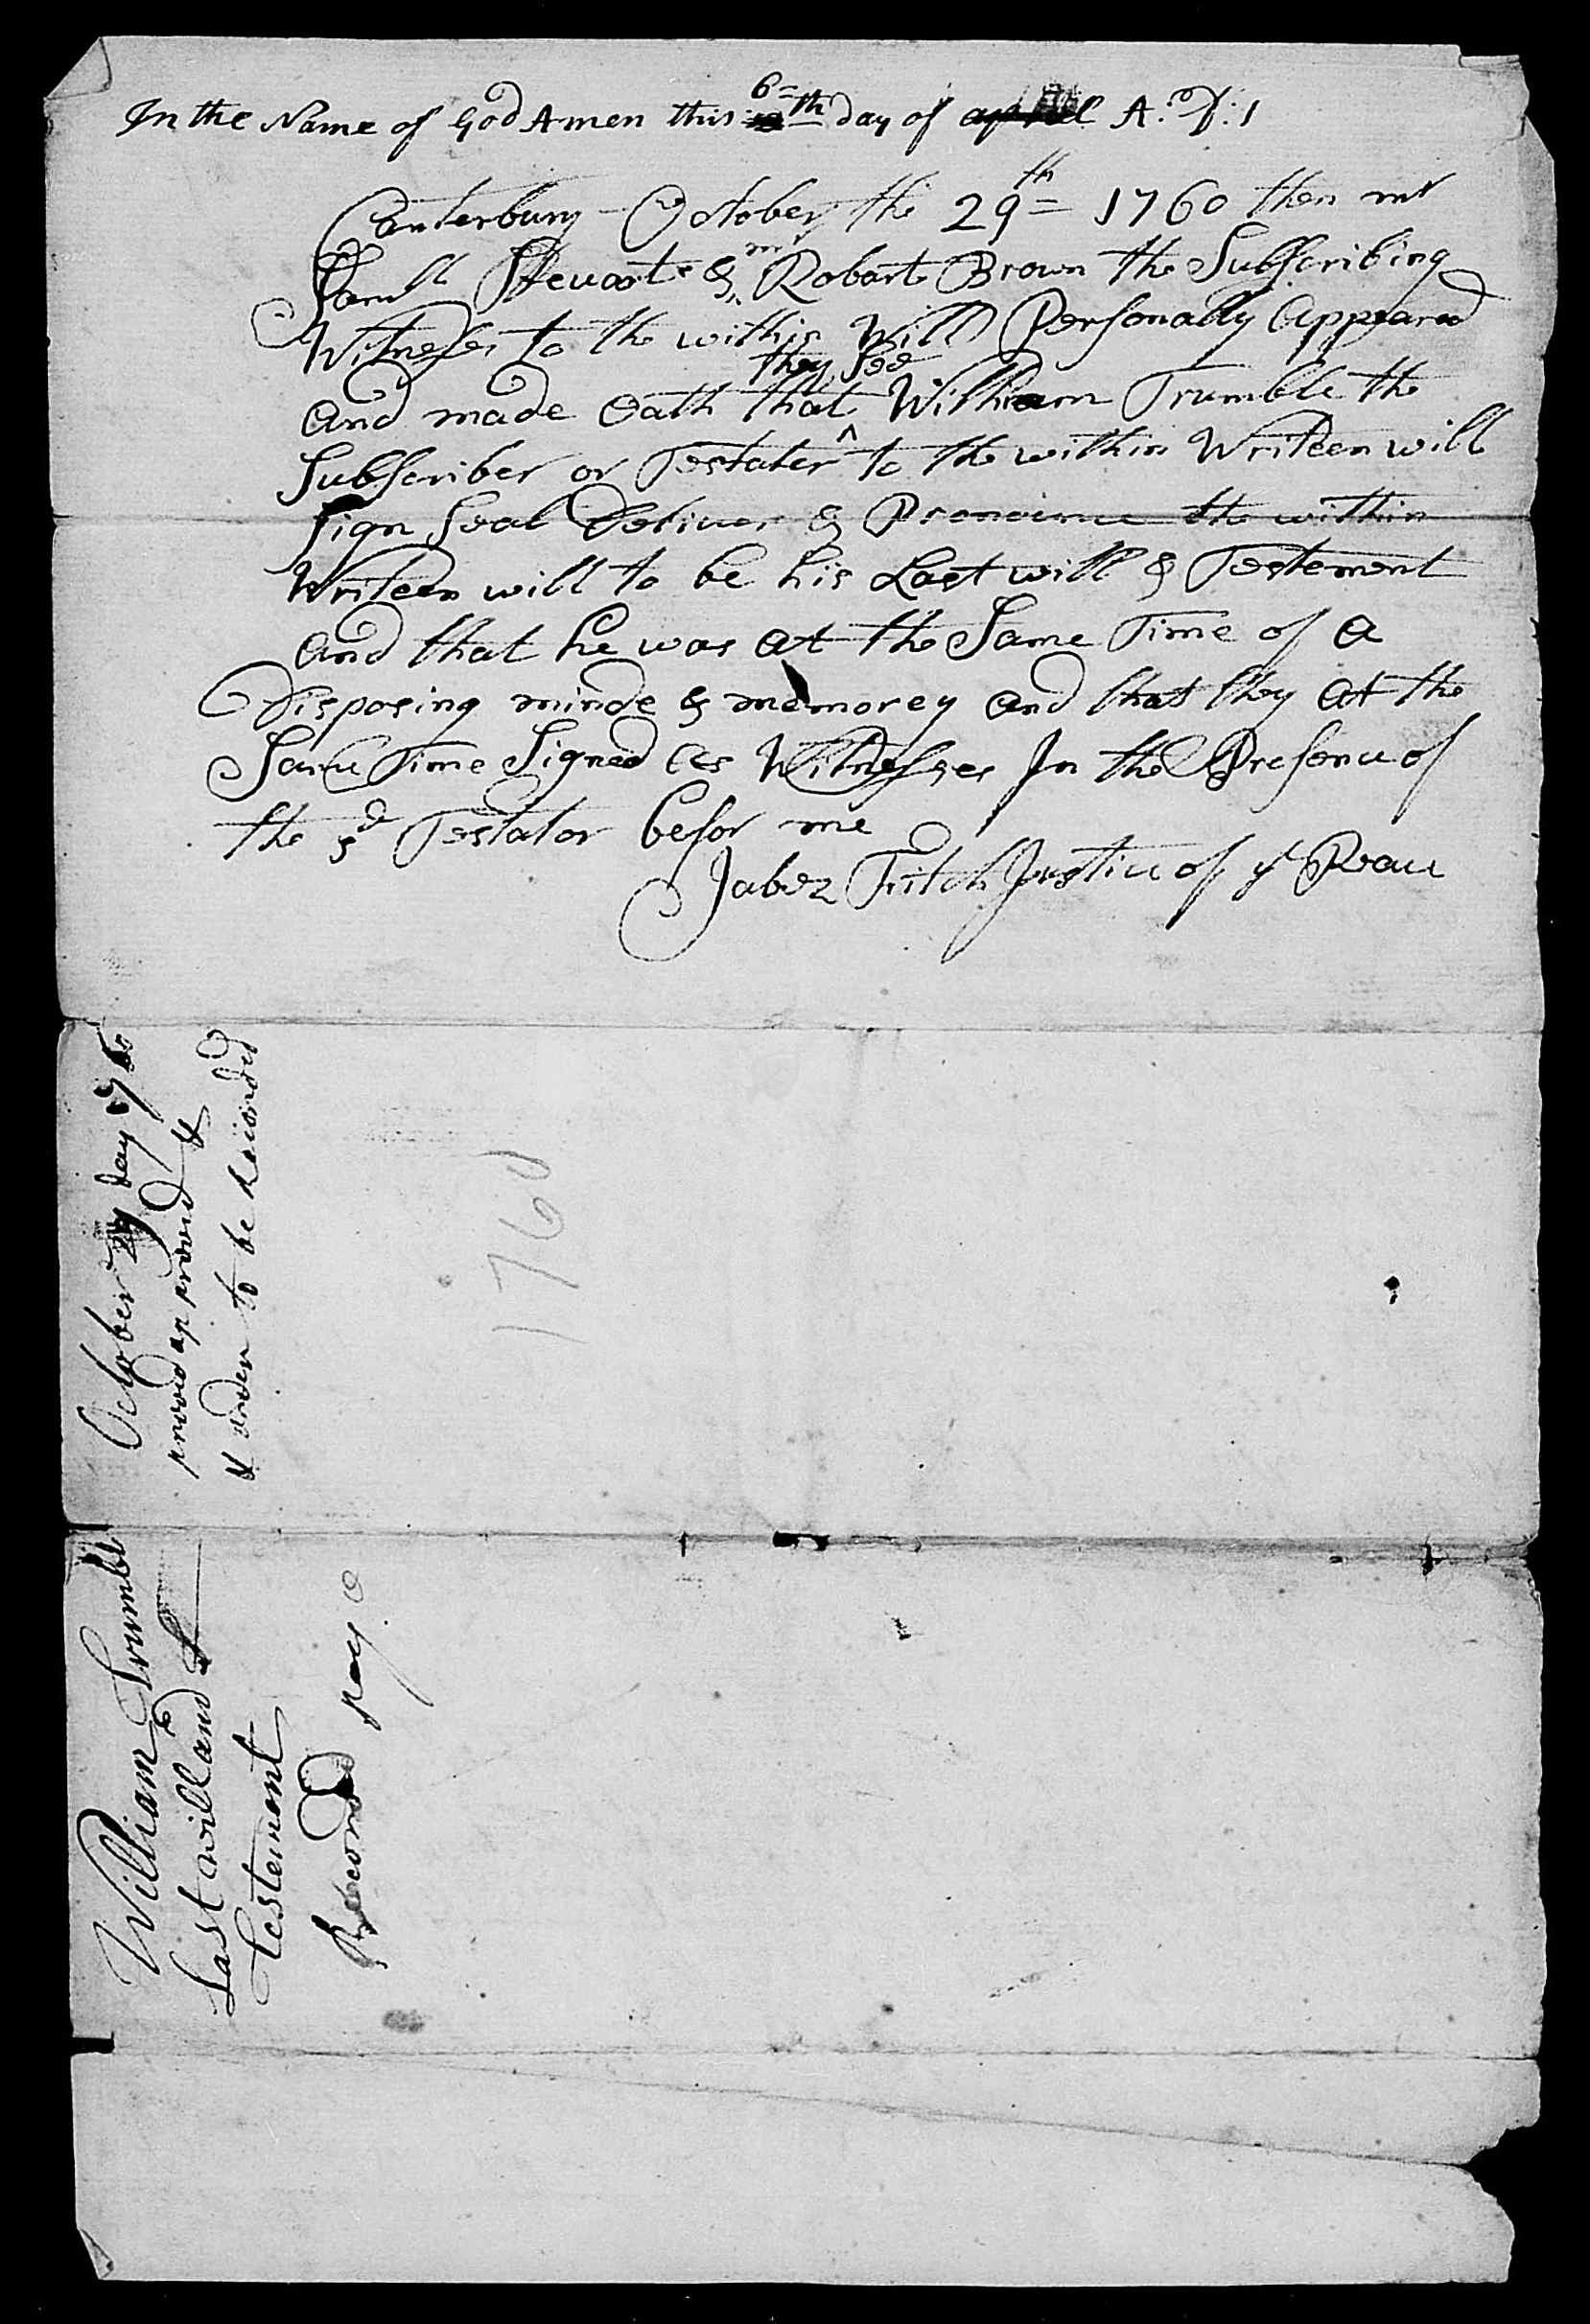 In the Name of God Amen this 6=th day of april A:o D: 1
Canterbury October the 29th= 1760 then mr
Samll Stevart & mr Robart Brown the Subscribing
Witneses to the within Will Personally Appeared
and made Oath that they See William Trumble the
Subscriber or Testater to the within Writeen will
Sign Seal Deliver & Pronounce the within
Writeen will to be his Last will & Testement
and that he was at the Same Time of a
Disposing minde & memorey and that they at the
Same Time Signed as Witnesses In the Presence of
the sd Testator befor me
Jabez Fitch Justice of ye Peace
October 29 day 1760
proved approved &
& order to be Recorded
1760
William Trumbl
Last will and
Testement
Record page